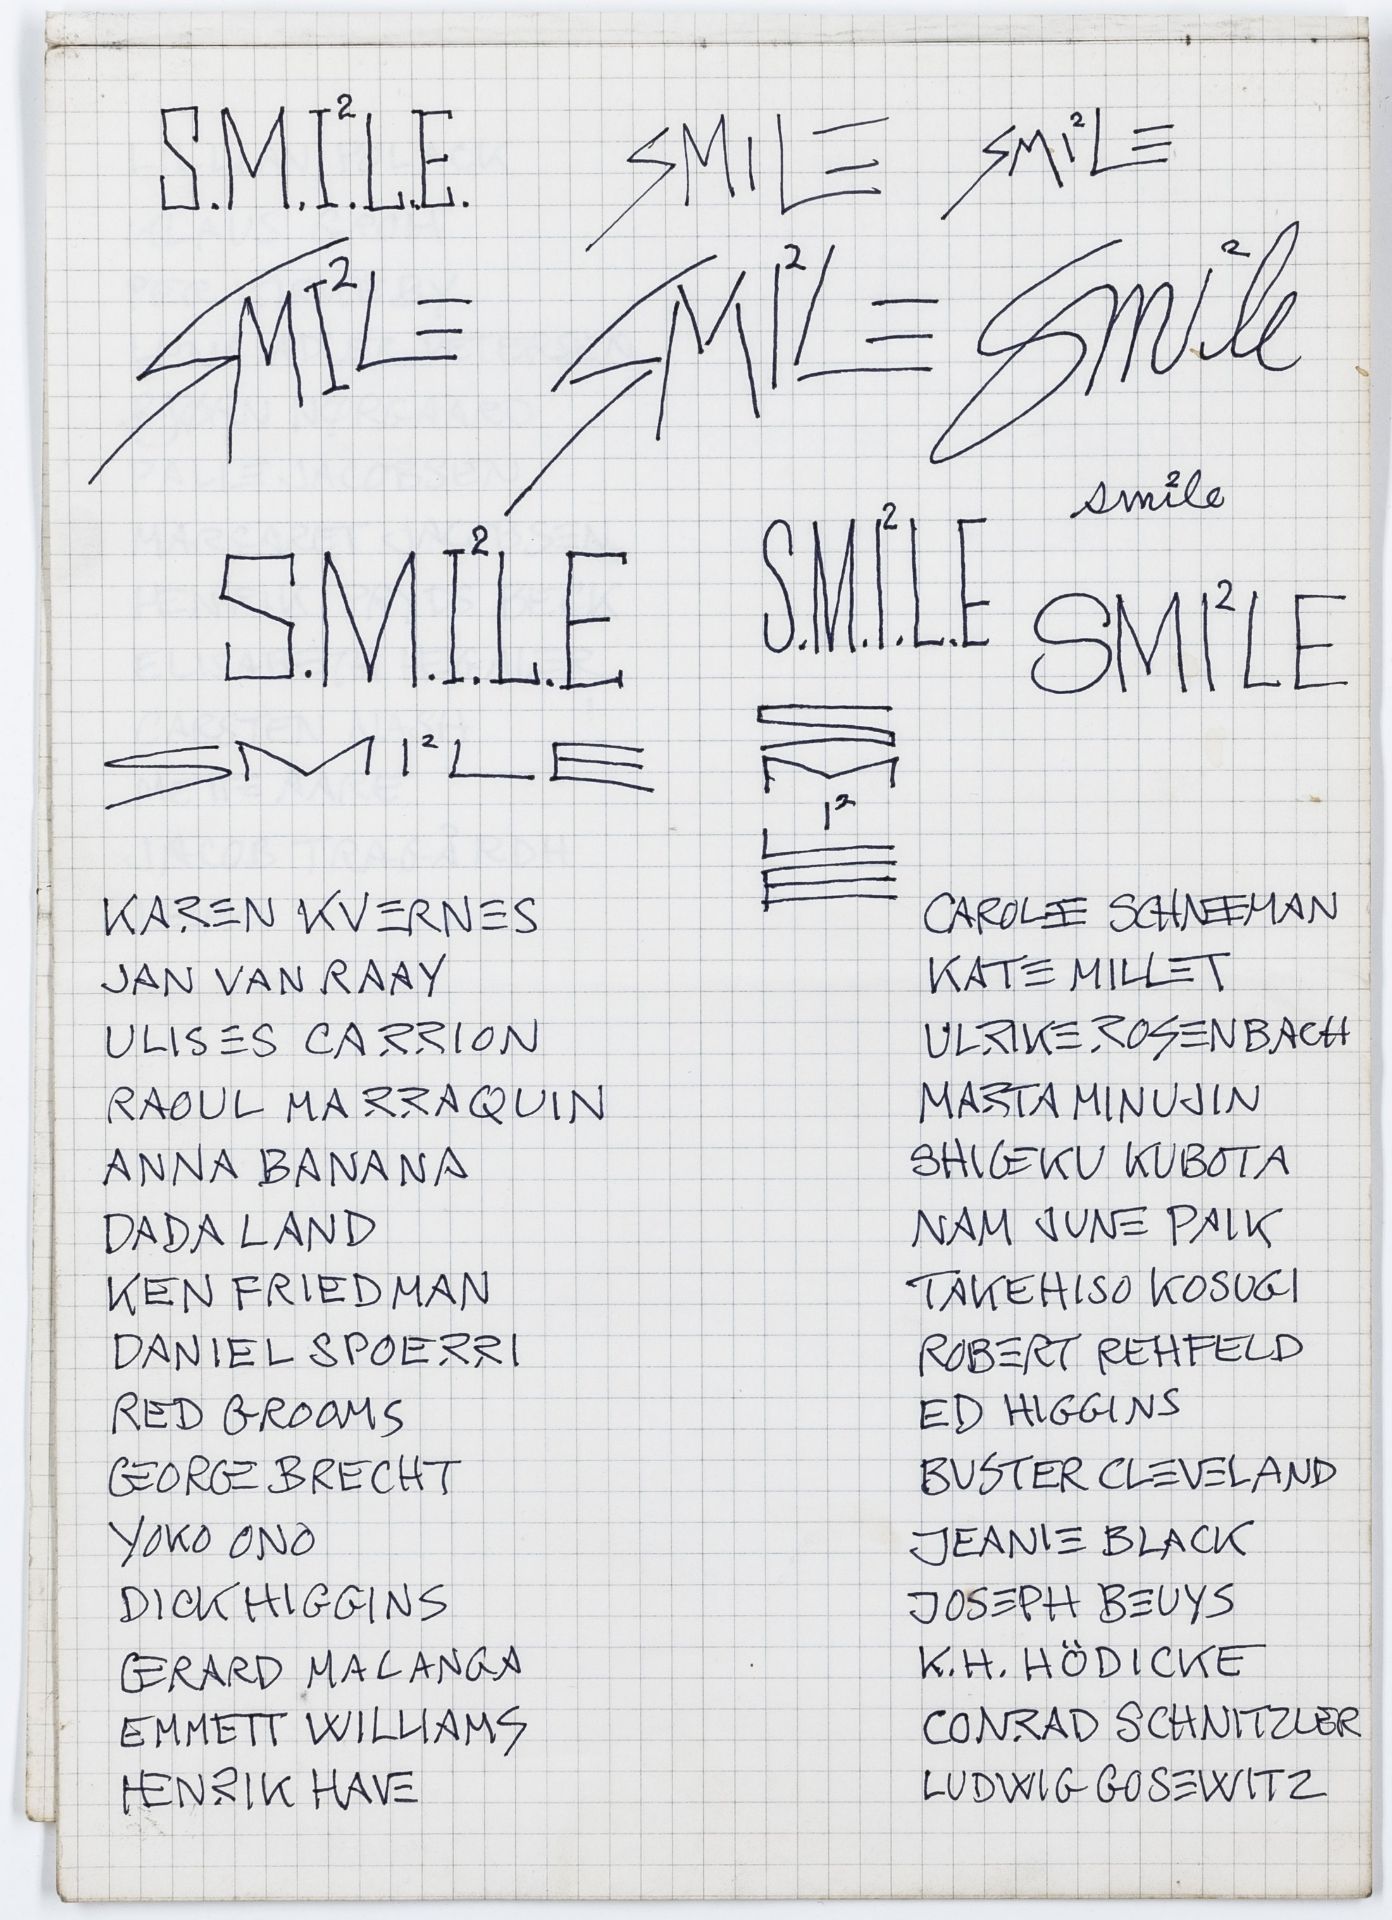 S.M.I².L.E.
SMILE
SMI²LE
SMI²LE
SMI²LE
Smi²le
smi²le
S.M.I².L.E
S.M.I².L.E
SMI²LE
SMI²LE
S
M
I²
L
E
KAREN KVERNES
JAN VAN RAAY
ULISES CARRION
RAOUL MARRAQUIN
ANNA BANANA
DADA LAND
KEN FRIEDMAN
DANIEL SPOERRI
RED GROOMS
GEORGE BRECHT
YOKO ONO
DICK HIGGINS
GERARD MALANGA
EMMETT WILLIAMS
HENRIK HAVE
CAROLEE SCHNEEMAN
KATE MILLET
ULRIKE ROSENBACH
MARTA MINUJIN
SHIGEKU KUBOTA
NAM JUNE PAIK
TAKEHISO KOSUGI
ROBERT REHFELD
ED HIGGINS
BUSTER CLEVELAND
JEANIE BLACK
JOSEPH BEUYS
K.H. HÖDICKE
CONRAD SCHNITZLER
LUDWIG GOSEWITZ